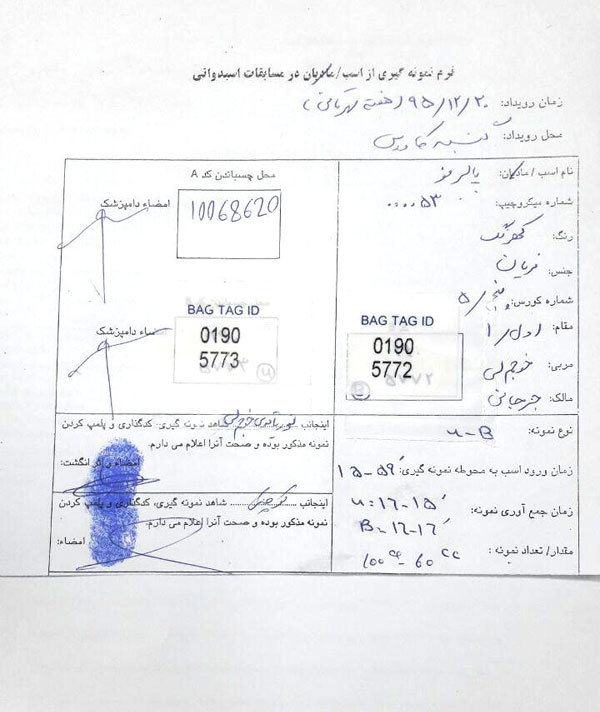 فرم نمونه گیری از اسب/مادیان در مسابقات اسبدوانی
زمان رویداد: ۹۵/۱۲/۲۰ (هفته قهرمانی)
محل رویداد:
نام اسب/مادیان:
شماره میکروچیپ: ۰۰۰۰۵۳
رنگ: کهر
جنس: نریان
شماره کورس: پنجم/۵
مقام: اول/۱
مربی: خوجملی
مالک: جرجانی
نوع نمونه: u-B
زمان ورود اسب به محوطه نمونه گیری: ۱۵-۵۹
زمان جمع آوری نمونه: u=۱۶-۱۵
B=۱۶-۱۶
مقدار/تعداد نمونه: ۱۰۰cc-۶۰cc
محل چسباندن کد A
امضاء دامپزشک
10068620
BAG TAG ID
0190
5773
امضاء دامپزشک
BAG TAG ID
0190
5772
B
اینجانب خوجملی شاهد نمونه گیری، کدگذاری و پلمپ کردن
نمونه مذکور بوده و صحت آنرا اعلام می دارم.
امضاء و اثر انگشت:
اینجانب شاهد نمونه گیری، کدگذاری و پلمپ کردن
نمونه مذکور بوده و صحت آنرا اعلام می دارم.
امضاء: